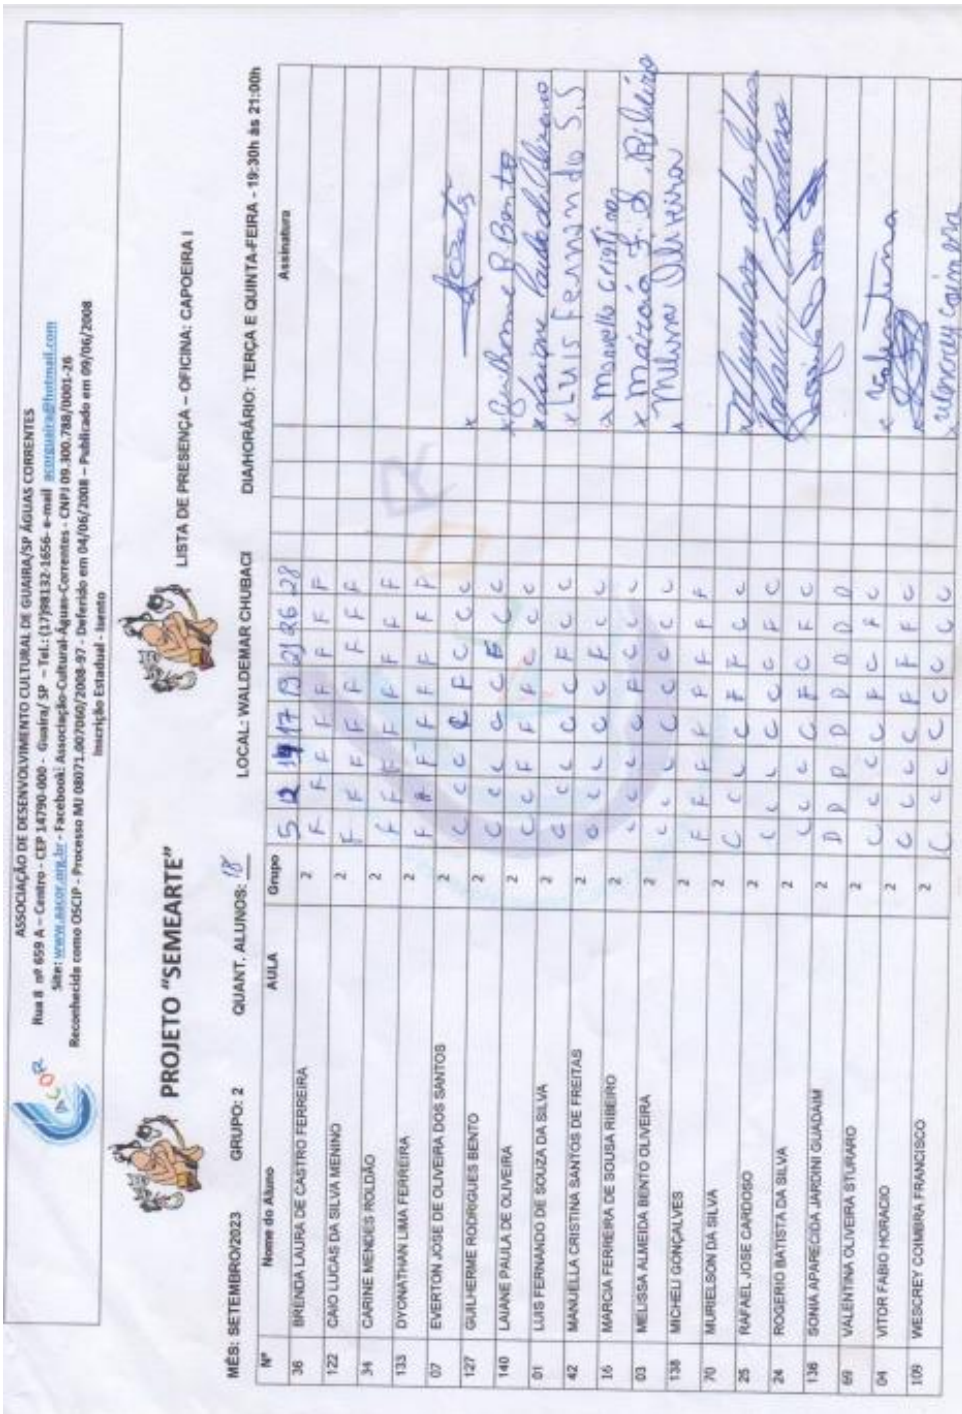 ASSOCIAÇÃO DE DESENVOLVIMENTO CULTURAL DE GUAIRA/SP ÁGUAS CORRENTES
Rua 8 nº 659 A – Centro - CEP 14790-000 - Guaira/ SP – Tel.: (17)98132-1656- e-mail acorguaira@hotmail.com
Site: www.aacor.org.br - Facebook: Associação-Cultural-Águas-Correntes - CNPJ 09.300.788/0001-26
Reconhecida como OSCIP - Processo MJ 08071.007060/2008-97 - Deferido em 04/06/2008 – Publicado em 09/06/2008
Inscrição Estadual - Isento
ACOR
PROJETO "SEMEARTE"
LISTA DE PRESENÇA – OFICINA: CAPOEIRA I
MÊS: SETEMBRO/2023 GRUPO: 2 QUANT. ALUNOS: 18 LOCAL: WALDEMAR CHUBACI DIA/HORÁRIO: TERÇA E QUINTA-FEIRA - 19:30h às 21:00h
Nº Nome do Aluno AULA Grupo 5 12 14 17 19 21 26 28 Assinatura
36 BRENDA LAURA DE CASTRO FERREIRA 2 F F F F F F F F
122 CAIO LUCAS DA SILVA MENINO 2 F F F F F F F F
34 CARINE MENDES ROLDÃO 2 F F F F F F F F
133 DYONATHAN LIMA FERREIRA 2 F F F F F F F F
07 EVERTON JOSE DE OLIVEIRA DOS SANTOS 2 C C C C F C C C x
127 GUILHERME RODRIGUES BENTO 2 C C C C C F C C x Guilherme R Bento
140 LAIANE PAULA DE OLIVEIRA 2 C C C F F C C C x Laiane Paula de Oliveira
01 LUIS FERNANDO DE SOUZA DA SILVA 2 C C C C C F C C x Luis Fernando S.S
42 MANUELLA CRISTINA SANTOS DE FREITAS 2 C C C C C F C C x Manuella cristina
16 MARCIA FERREIRA DE SOUSA RIBEIRO 2 C C C C F C C C x Márcia F. S. Ribeiro
03 MELISSA ALMEIDA BENTO OLIVEIRA 2 C C C C C C C C x Melissa Oliveira
138 MICHELI GONÇALVES 2 F F F F F F F F
70 MURIELSON DA SILVA 2 C C C C F F C C Murielson da Silva
25 RAFAEL JOSE CARDOSO 2 C C C C C C F C Rafael J Cardoso
24 ROGERIO BATISTA DA SILVA 2 C C C C F C F C
136 SONIA APARECIDA JARDINI GUADAIM 2 D D D D D D D D
69 VALENTINA OLIVEIRA STURARO 2 C C C C F C F C x Valentina
04 VITOR FABIO HORACIO 2 C C C C F F F C
109 WESCREY COIMBRA FRANCISCO 2 C C C C C C C C x Wescrey coimbra